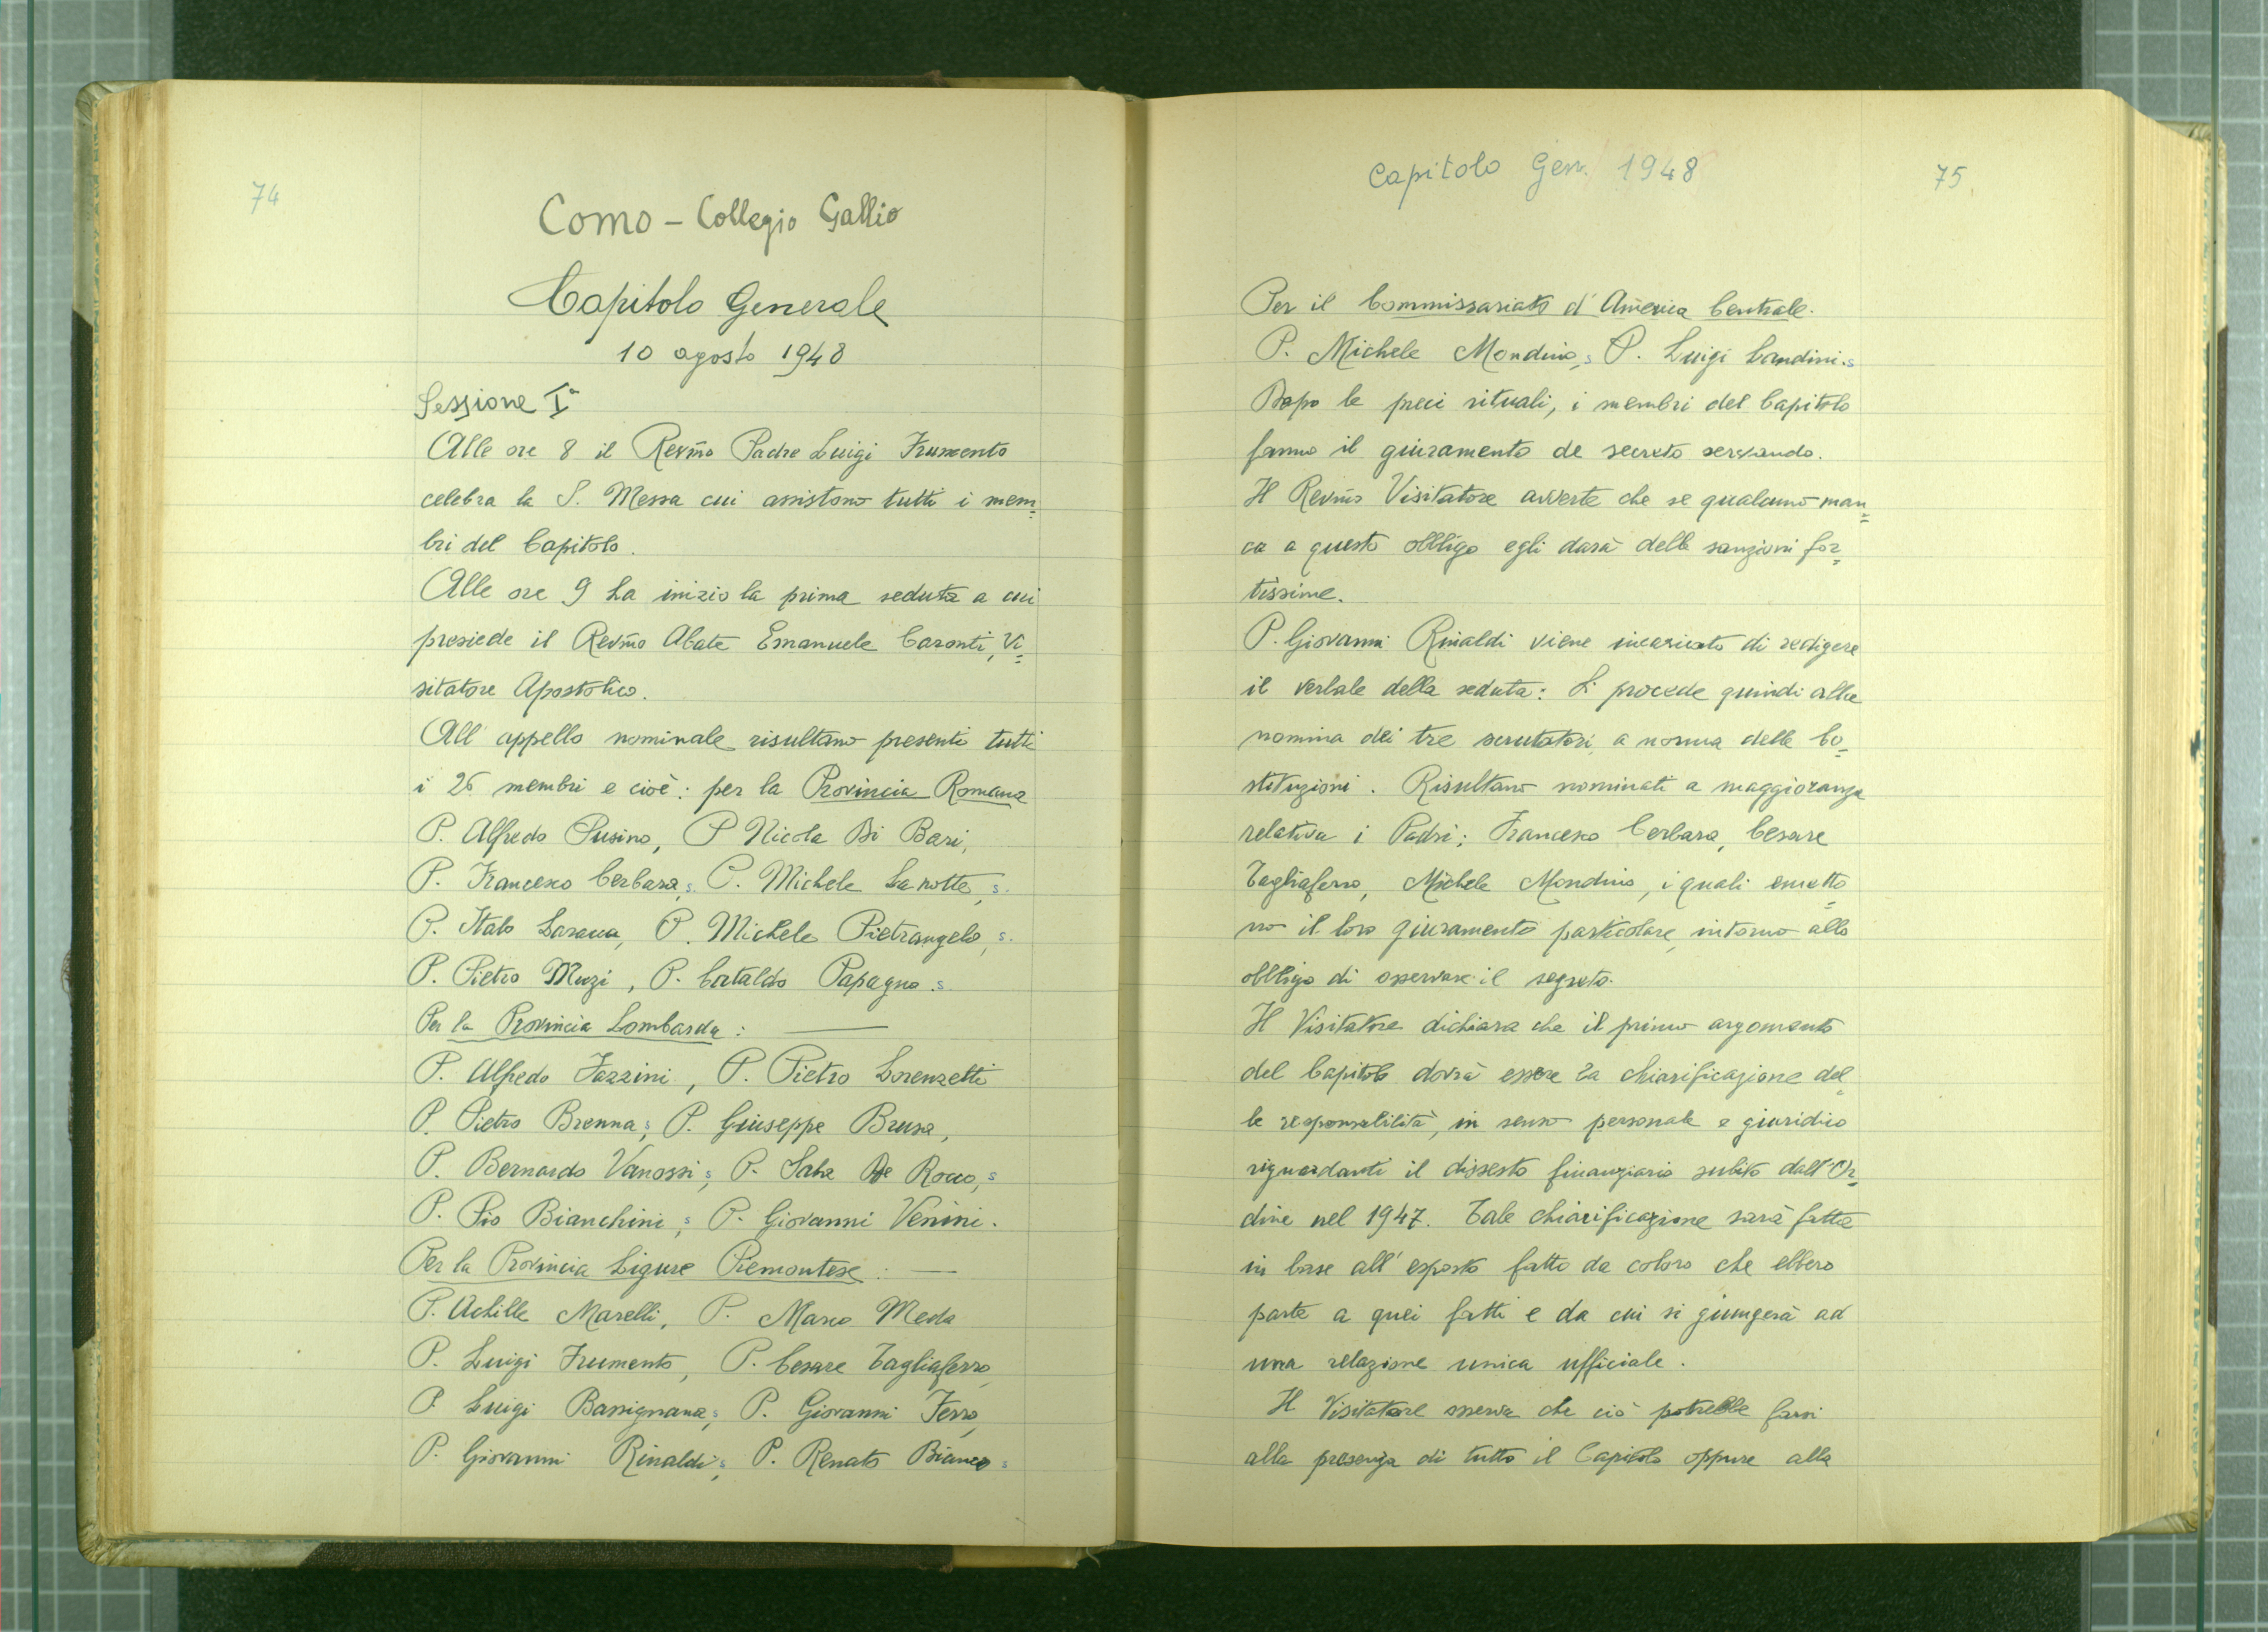 74
Como - Collegio Gallio
Capitolo Generale
10 agosto 1948
Sessione Iª
Alle ore 8 il Revm̃o Padre Luigi Frumento
celebra la S. Messa cui assistono tutti i mem=
bri del Capitolo.
Alle ore 9 ha inizio la prima seduta a cui
presiede il Revm̃o Abate Emanuele Caronti, Vi=
sitatore Apostolico.
All'appello nominale risultano presenti tutti
i 26 membri e cioè: per la Provincia Romana
P. Alfredo Pusino, P Nicola Di Bari,
P. Francesco Cerbara, s. P. Michele La notte, s.
P. Italo Laracca, P. Michele Pietrangelo, s.
P. Pietro Muzi, P. Cataldo Papagno. s
Per la Provincia Lombarda:
P. Alfredo Fazzini, P. Pietro Lorenzetti
P. Pietro Brenna s, P. Giuseppe Brusa,
P. Bernardo Vanossi s, P. Saba De Rocco, s
P. Pio Bianchini, s P. Giovanni Venini.
Per la Provincia Ligure Piemontese:
P. Achille Marelli, P. Marco Meda
P. Luigi Frumento, P. Cesare Tagliaferro,
P Luigi Bassignana, s P. Giovanni Ferro,
P. Giovanni Rinaldi s, P. Renato Bianco s
Capitolo Gen. 1948
75.
Per il Commissariato d'America Centrale.
P. Michele Mondino, s P. Luigi Landini. s
Dopo le preci rituali, i membri del Capitolo
fanno il giuramento de secreto servando.
Il Revm̃o Visitatore avverte che se qualcuno man=
ca a questo obbligo egli darà delle sanzioni for=
tissime.
P. Giovanni Rinaldi viene incaricato di redigere
il verbale della seduta: Si procede quindi alla
nomina dei tre scrutatori, a norma delle Co=
stituzioni. Risultano nominati a maggioranza
relativa i Padri: Francesco Cerbara, Cesare
Tagliaferro, Michele Mondino, i quali emetto=
no il loro giuramento particolare, intorno allo
obbligo di osservare il segreto.
Il Visitatore dichiara che il primo argomento
del Capitolo dovrà essere la chiarificazione del=
le responsabilità, in senso personale e giuridico
riguardanti il dissesto finanziario subito dall'Or=
dine nel 1947. Tale chiarificazione sarà fatta
in base all'esposto fatto da coloro che ebbero
parte a quei fatti e da cui si giungerà ad
una relazione unica ufficiale.
Il Visitatore osserva che ciò potrebbe farsi
alla presenza di tutto il Capitolo oppure alla